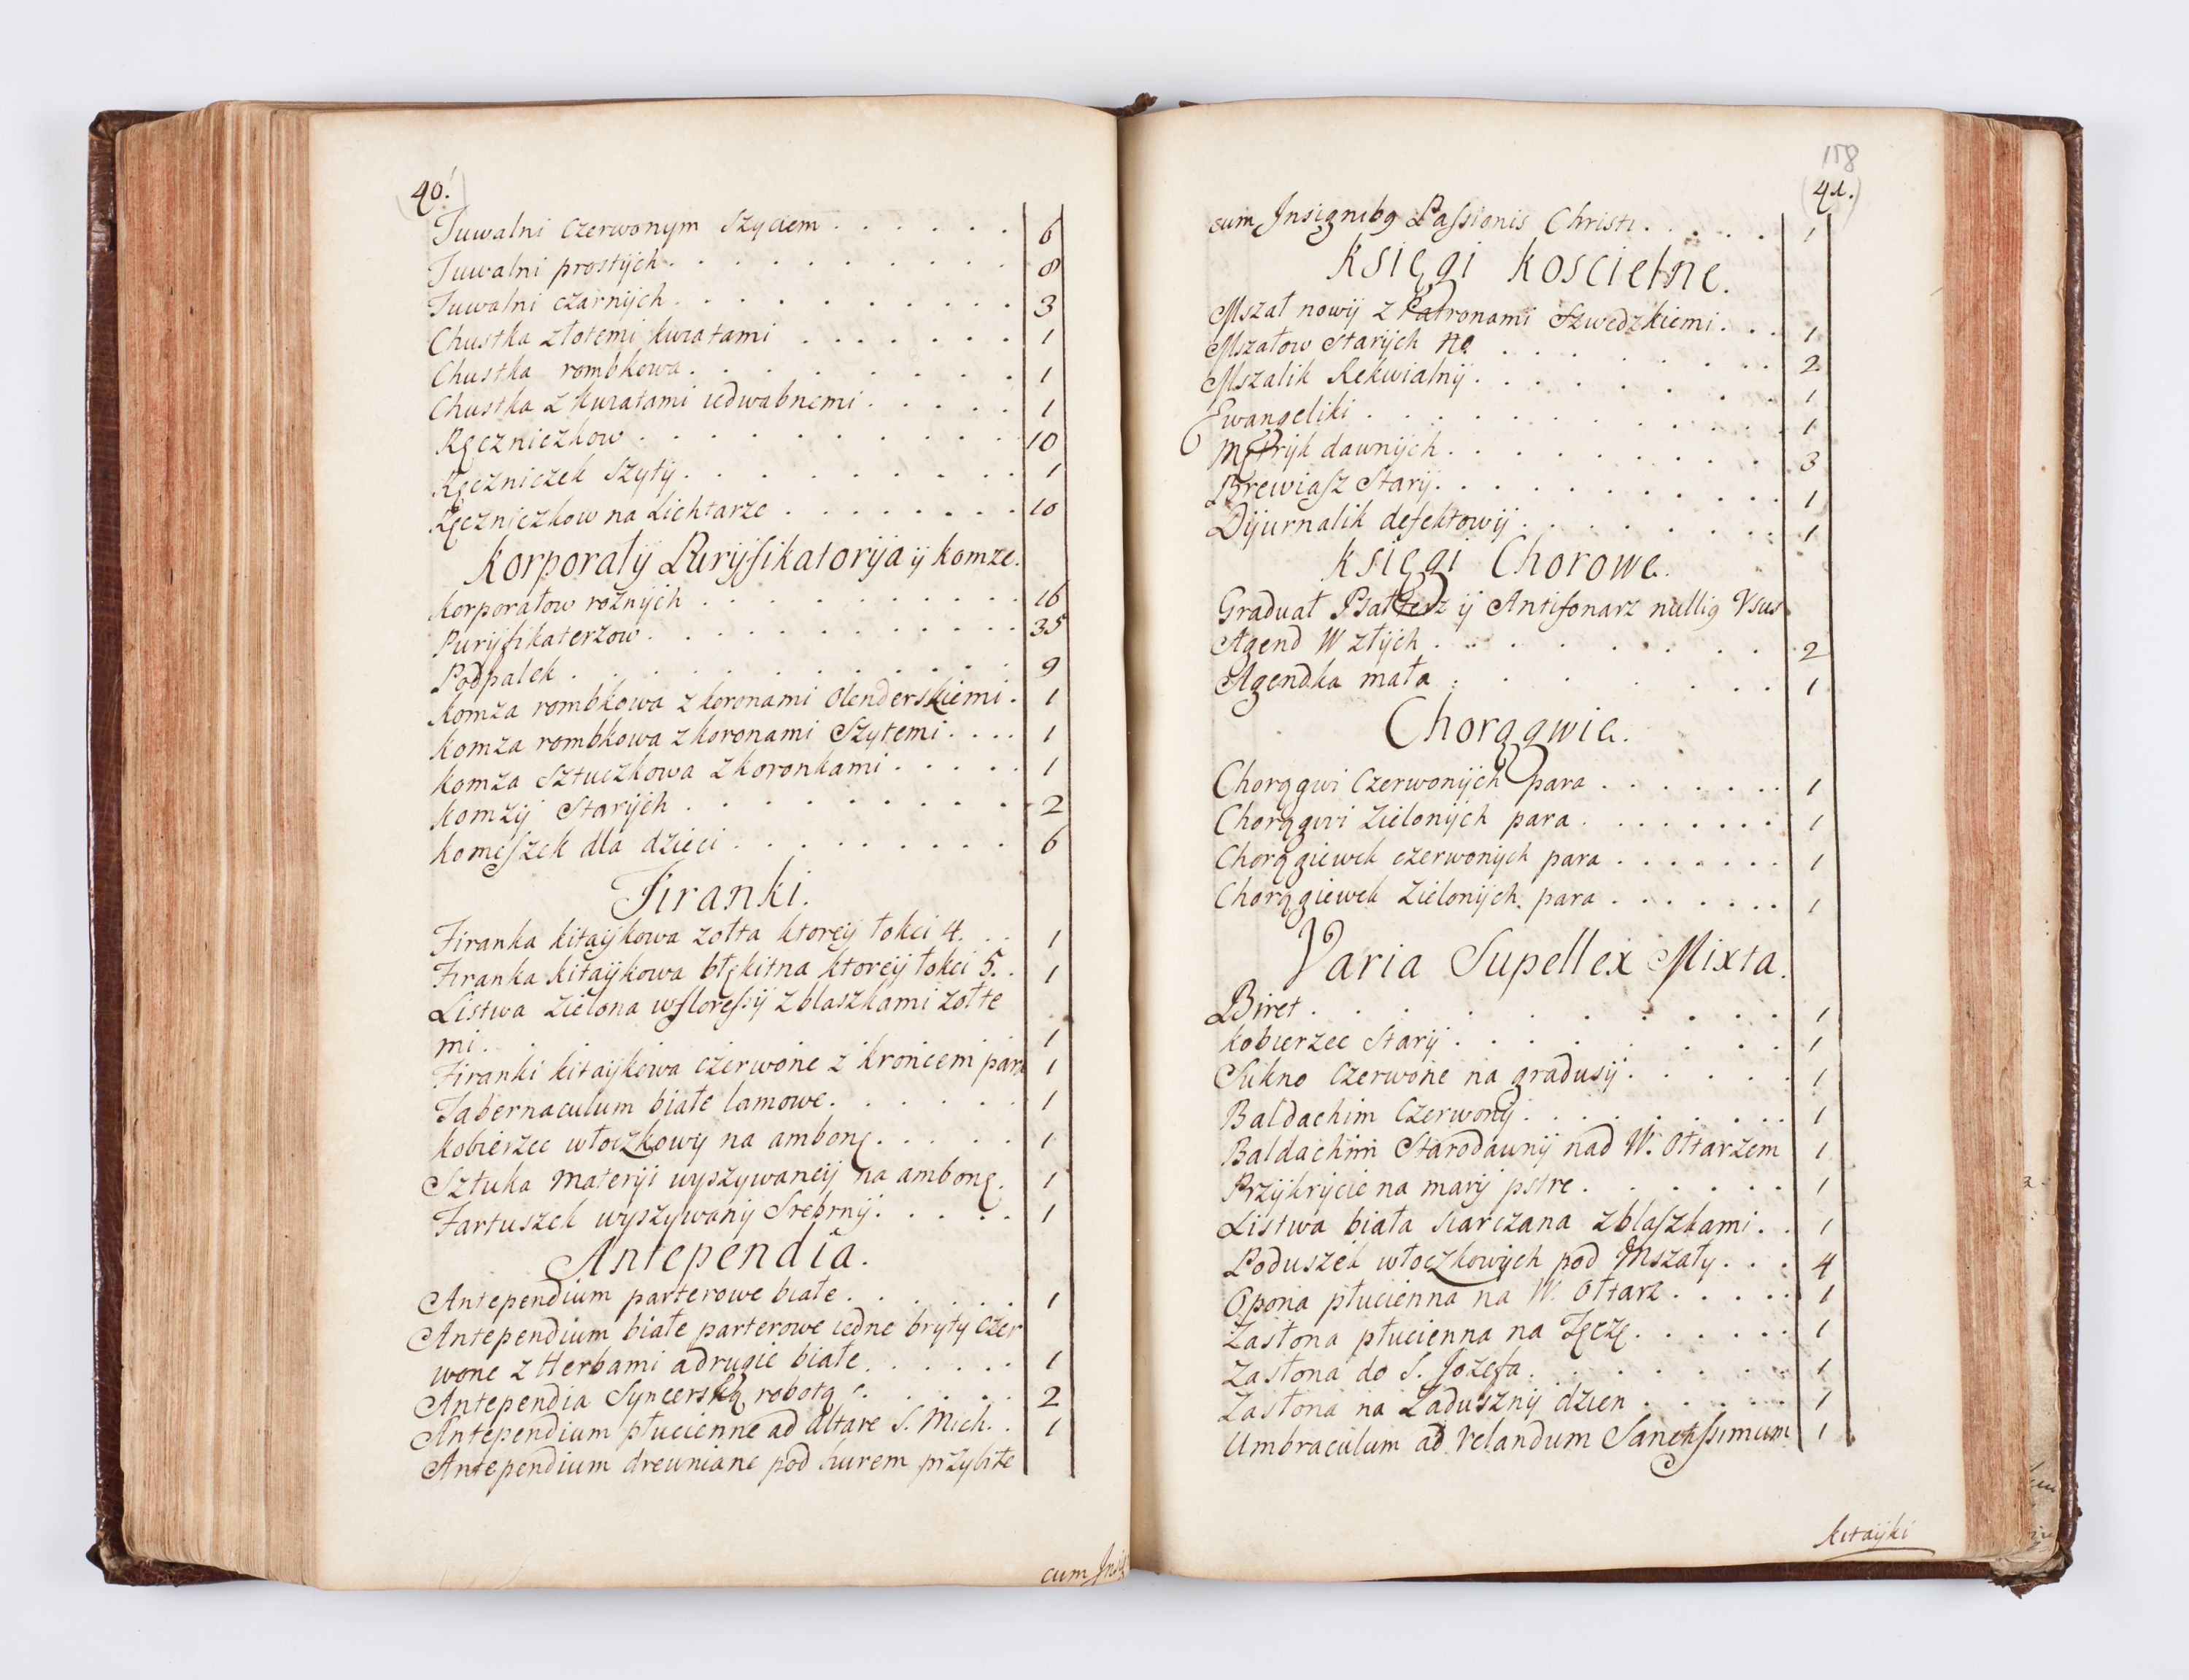 40.
Tuwalni czerwonym szyciem . . . . . . 6
Tuwalni prostÿch . . . . . . . . . . 8
Tuwalni czarnÿch . . . . . . . . . . 3
Chustka złotemi kwiatami . . . . . . . 1
Chustka rombkowa . . . . . . . . . 1
Chustka z kwiatami iedwabnemi . . . . . 1
Ręczniczkow . . . . . . . . . . 10
Ręczniczek szytÿ . . . . . . . . . 1
Ręczniczkow na Lichtarze . . . . . . . 10
Korporałÿ Purÿfikatorÿa ÿ komze.
Korporałow roznÿch . . . . . . . . . 16
Purÿfikaterzow . . . . . . . . . . 35
Podpalek . . . . . . . . . . . 9
Komza rombkowa z koronami Olenderskiemi . 1
Komza rombkowa z koronami Szytemi . . . . 1
Komza Sztuczkowa z koronkami . . . . . 1
Komzÿ Starÿch . . . . . . . . . 2
Komeszek dla dzieci . . . . . . . . 6
Firanki.
Firanka kitaÿkowa zołta ktoreÿ łokci 4. . . 1
Firanka kitaÿkowa błękitna ktoreÿ łokci 5. . 1
Listwa zielona w floreſsÿ z blaszkami zołte
mi . . . . . . . . 1
Firanki kitaÿkowa czerwone z kroncem para 1
Tabernaculum białe lamowe . . . . . . 1
Kobierzec włoczkowy na ambonę . . . . . 1
Sztuka Materÿi wyszywaneÿ na ambonę . 1
Fartuszek wyszywanÿ Srebrnÿ . . . . . 1
Antependia.
Antependium parterowe białe . . . . . . 1
Antependium białe parterowe iedne bryty czer
wone z Herbami a drugie białe . . . . . . 1
Antependia Syncerską robotą . . . . . 2
Antependium płucienne ad altare S. Mich. . 1
Antependium drewniane pod kurem przybite
cum
158
41.
cum Insignibq Paſsionis Christi . . . . . 1
Księgi Koscielne.
Mszał nowÿ z Patronami Szwedzkiemi . . . 1
Mszałow Starÿch No . . . . . . . . 2
Mszalik Rekwialnÿ . . . . . . . . 1
Ewangeliki . . . . . . . . . . 1
Metrÿk dawnÿch . . . . . . . . . 3
Brewiaſz Starÿ . . . . . . . . . . 1
Dÿurnalik defektowÿ . . . . . . . . 1
Księgi Chorowe.
Graduał Psałterz ÿ Antifonarz nulliq Vsus
Agend W złÿch . . . . . . . . . 2
Agendka mała . . . . . . . . 1
Chorągwie.
Chorągwi Czerwonÿch para . . . . . . . 1
Chorągwi Zielonÿch para . . . . . . . 1
Chorągiewek czerwonÿch para . . . . . . . 1
Chorągiewek Zielonÿch para . . . . . . . 1
Varia Supellex Mixta.
Biret . . . . . . . . . . . 1
Kobierzec Starÿ . . . . . . . . . 1
Sukno Czerwone na gradusÿ . . . . . 1
Baldachim Czerwonÿ . . . . . . . . 1
Baldachim Starodawnÿ nad W. Ołtarzem 1
Przÿkrÿcie na marÿ pstre . . . . . . 1
Listwa biała siarczana z blaſzkami . . 1
Poduszek włoczkowÿch pod Mszały . . . 4
Opona płucienna na W. Ołtarz . . . . . 1
Zasłona płucienna na Tęczę . . . . . . 1
Zasłona do S. Jozefa . . . . . . . . 1
Zasłona na Zadusznÿ dzien . . . . . 1
Umbraculum ad velandum Sanctiſsimum 1
kitaÿki